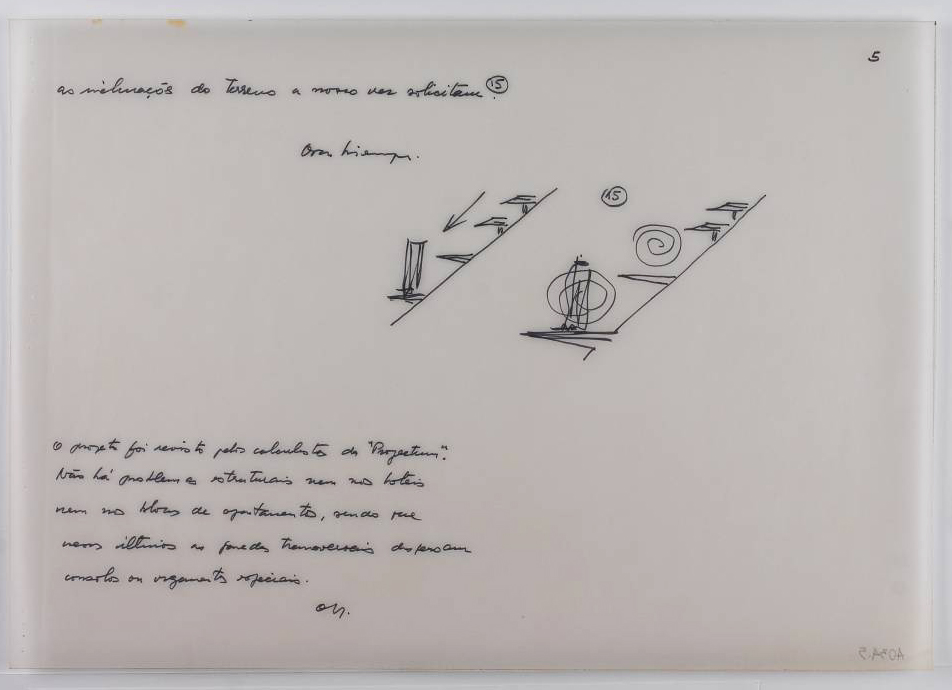 5
as inclinações do terreno a nosso ver solicitam (15).
Oscar Niemeyer.
15
O projeto foi revisto pelos calculistas da "Projectum".
Não há problemas estruturais nem nos hoteis
nem nos blocos de apartamentos, sendo que
nestes últimos as paredes transversais dispensam
consolos ou vigamentos especiais.
ON.
A054.5